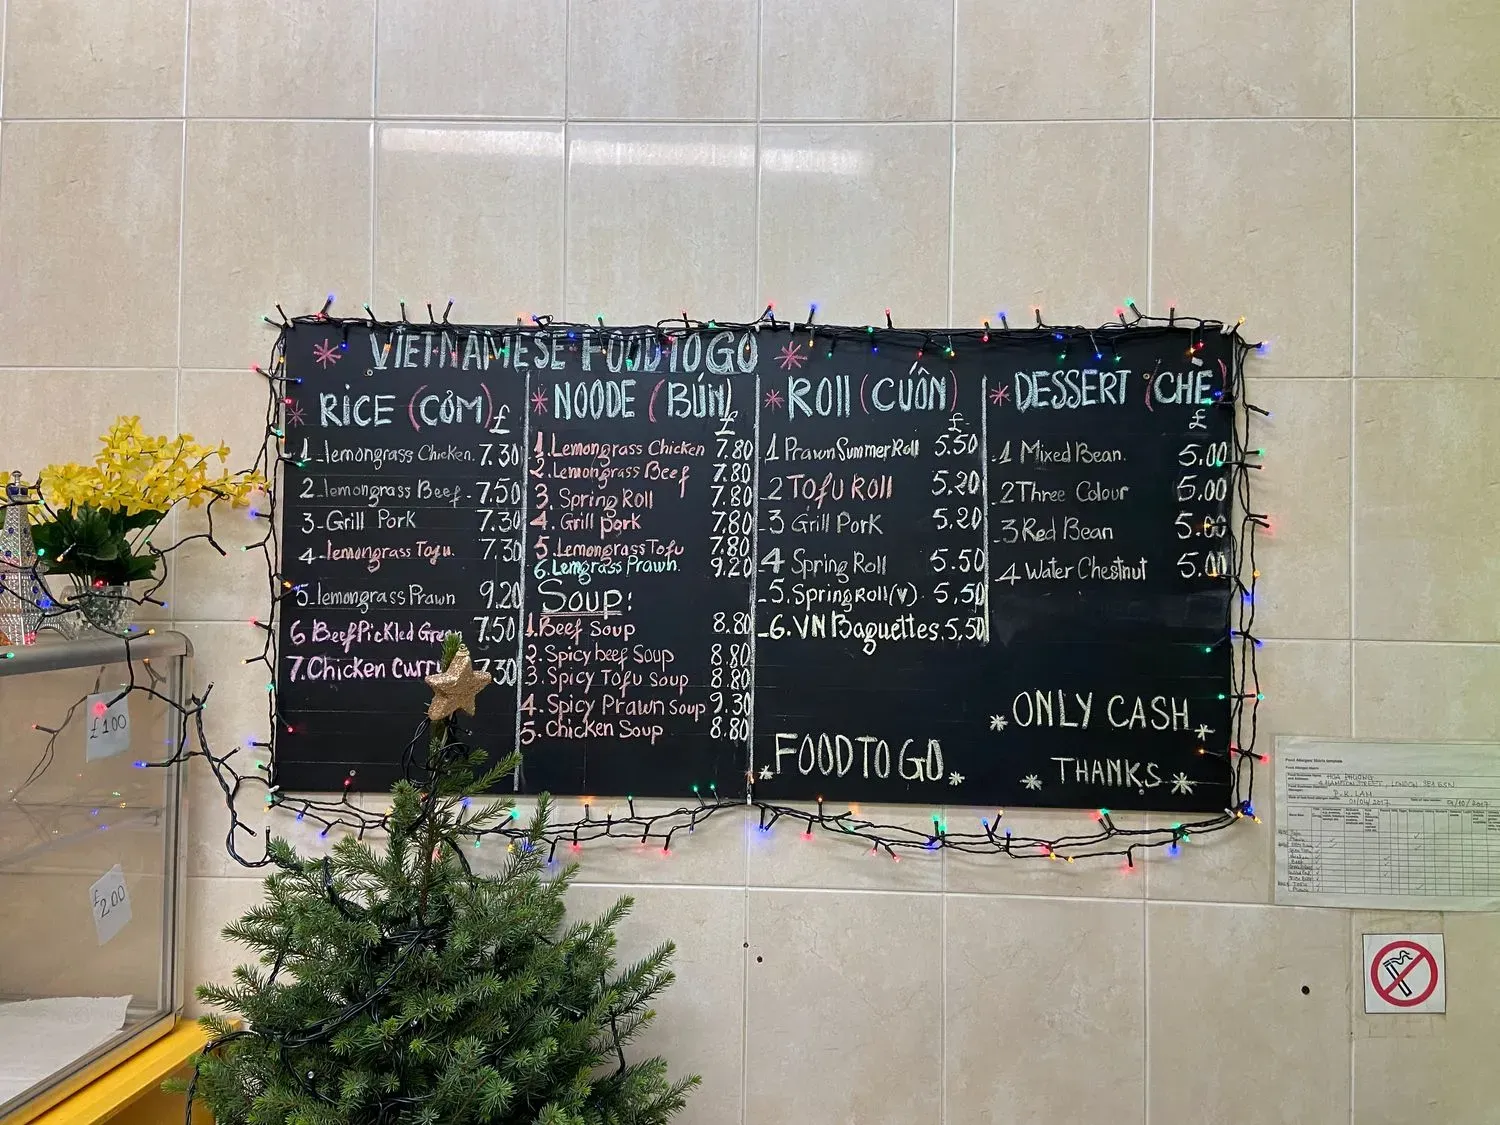 VIETNAMESE FOOD TO GO
RICE (CƠM) £
1_lemongrass Chicken. 7.30
2_lemongrass Beef. 7.50
3_Grill Pork 7.30
4_lemongrass Tofu. 7.30
5_lemongrass Prawn 9.20
6 Beef Pickled 7.50
7. Chicken Curry
NOODE (BÚN)
£
1. Lemongrass Chicken 7.80
2. Lemongrass Beef 7.80
3. Spring Roll 7.80
4. Grill pork 7.80
5. Lemongrass Tofu 7.80
6. Lemgrass Prawn. 9.20
Soup:
1. Beef Soup 8.80
2. Spicy beef Soup 8.80
3. Spicy Tofu Soup 8.80
4. Spicy Prawn Soup 9.30
5. Chicken Soup 8.80
ROll (CUỐN)
£
1 Prawn Summer Roll 5.50
_2 TOfU ROLL 5.20
_3 Grill Pork 5.20
4 Spring Roll 5.50
_5. Spring Roll (v). 5,50
_6. VN Baguettes. 5,50
FOOD TO GO
DESSERT (CHÈ)
£
.1 Mixed Bean. 5.00
_2 Three Colour 5.00
_3 Red Bean 5.00
_4 Water Chestnut 5.00
ONLY CASH
THANKS
£1.00
£2.00
Food Allergen Matrix template
HOA PHUONG
4 HAMPTON STREET, LONDON SE1 6SN
P.K. LAM
01/04/2017 01/10/2017